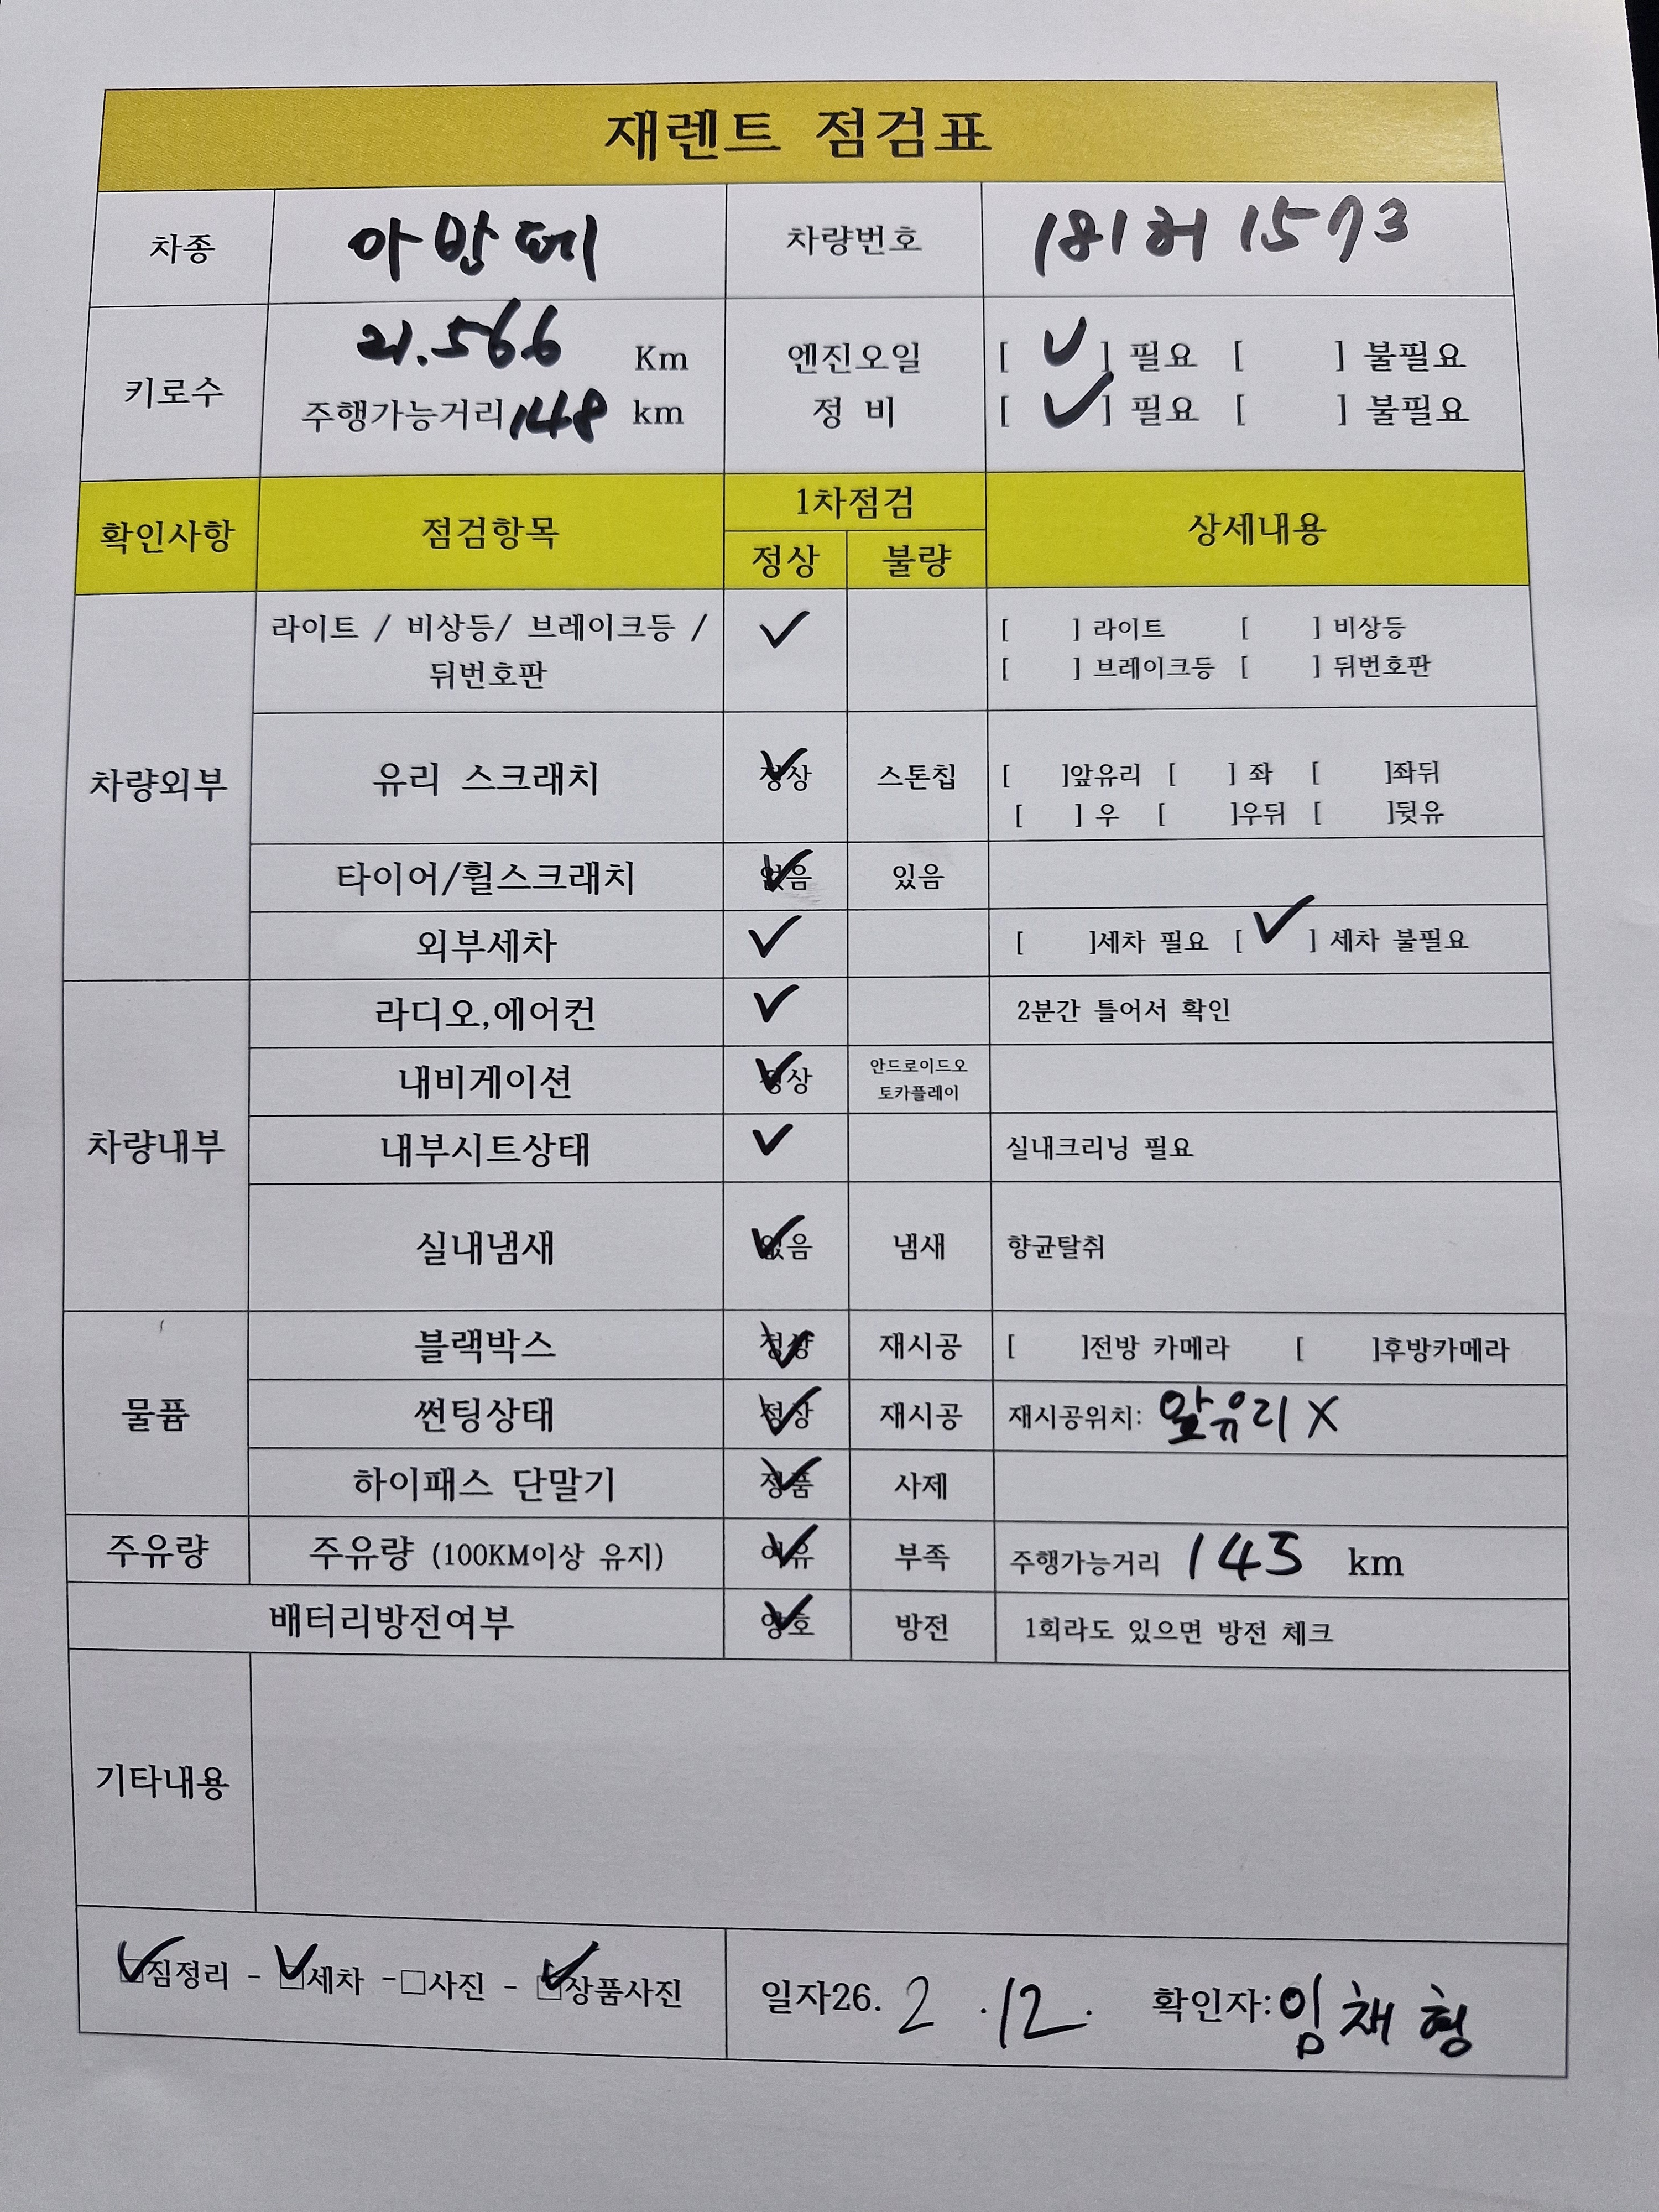 재렌트 점검표
차종 아반떼 차량번호 181허 1573
키로수 21.566 Km 엔진오일 [ ✓ ] 필요 [ ] 불필요
주행가능거리 148 km 정 비 [ ✓ ] 필요 [ ] 불필요
확인사항 점검항목 1차점검 상세내용
정상 불량
차량외부
라이트 / 비상등/ 브레이크등 / ✓ [ ] 라이트 [ ] 비상등
뒤번호판 [ ] 브레이크등 [ ] 뒤번호판
유리 스크래치 ✓ 정상 스톤칩 [ ]앞유리 [ ] 좌 [ ]좌뒤
[ ] 우 [ ]우뒤 [ ]뒷유
타이어/휠스크래치 ✓ 없음 있음
외부세차 ✓ [ ]세차 필요 [ ✓ ] 세차 불필요
차량내부
라디오,에어컨 ✓ 2분간 틀어서 확인
내비게이션 ✓ 정상 안드로이드오
토카플레이
내부시트상태 ✓ 실내크리닝 필요
실내냄새 ✓ 없음 냄새 향균탈취
물품
블랙박스 ✓ 정상 재시공 [ ]전방 카메라 [ ]후방카메라
썬팅상태 ✓ 정상 재시공 재시공위치: 앞유리 X
하이패스 단말기 ✓ 정품 사제
주유량 주유량 (100KM이상 유지) ✓ 여유 부족 주행가능거리 145 km
배터리방전여부 ✓ 양호 방전 1회라도 있으면 방전 체크
기타내용
☑짐정리 - ☑세차 -□사진 - ☑상품사진 일자26. 2 .12. 확인자:임채형